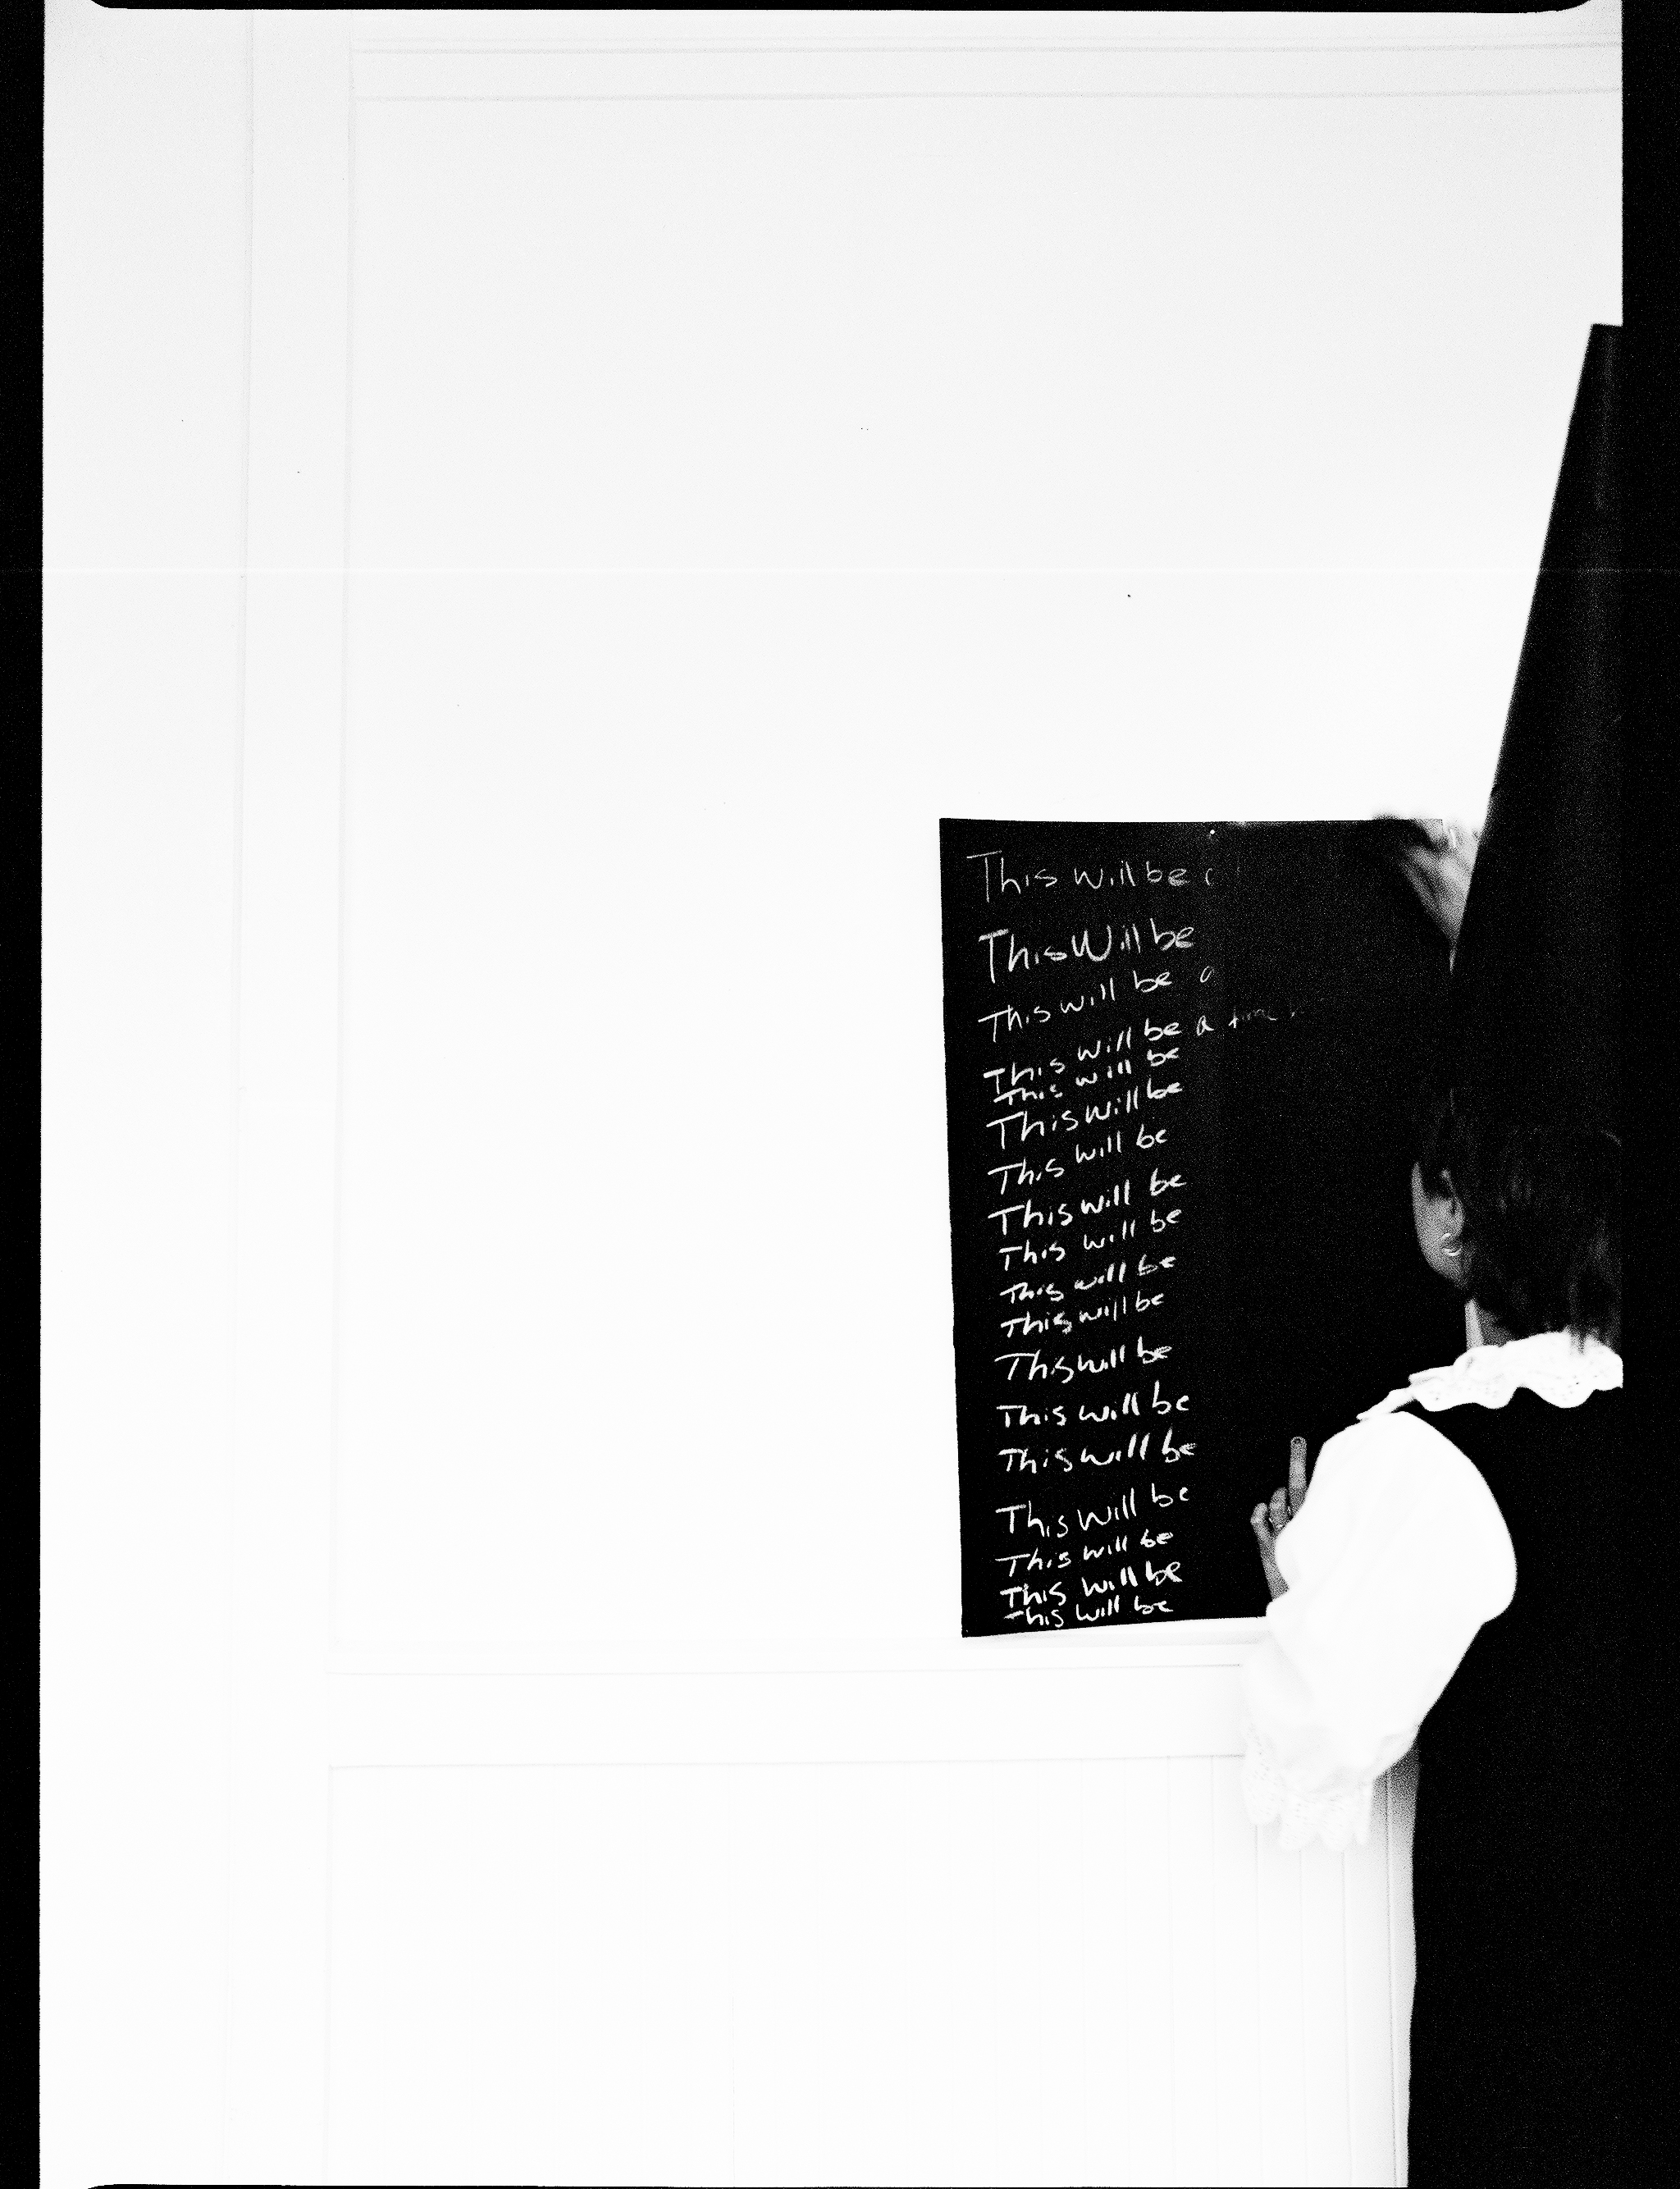 This will be
This Will be
This will be a
This will be a time
This will be
This will be
This will be
This will be
This will be
This will be
This will be
This will be
This will be
This will be
This will be
This will be
This will be
This will be